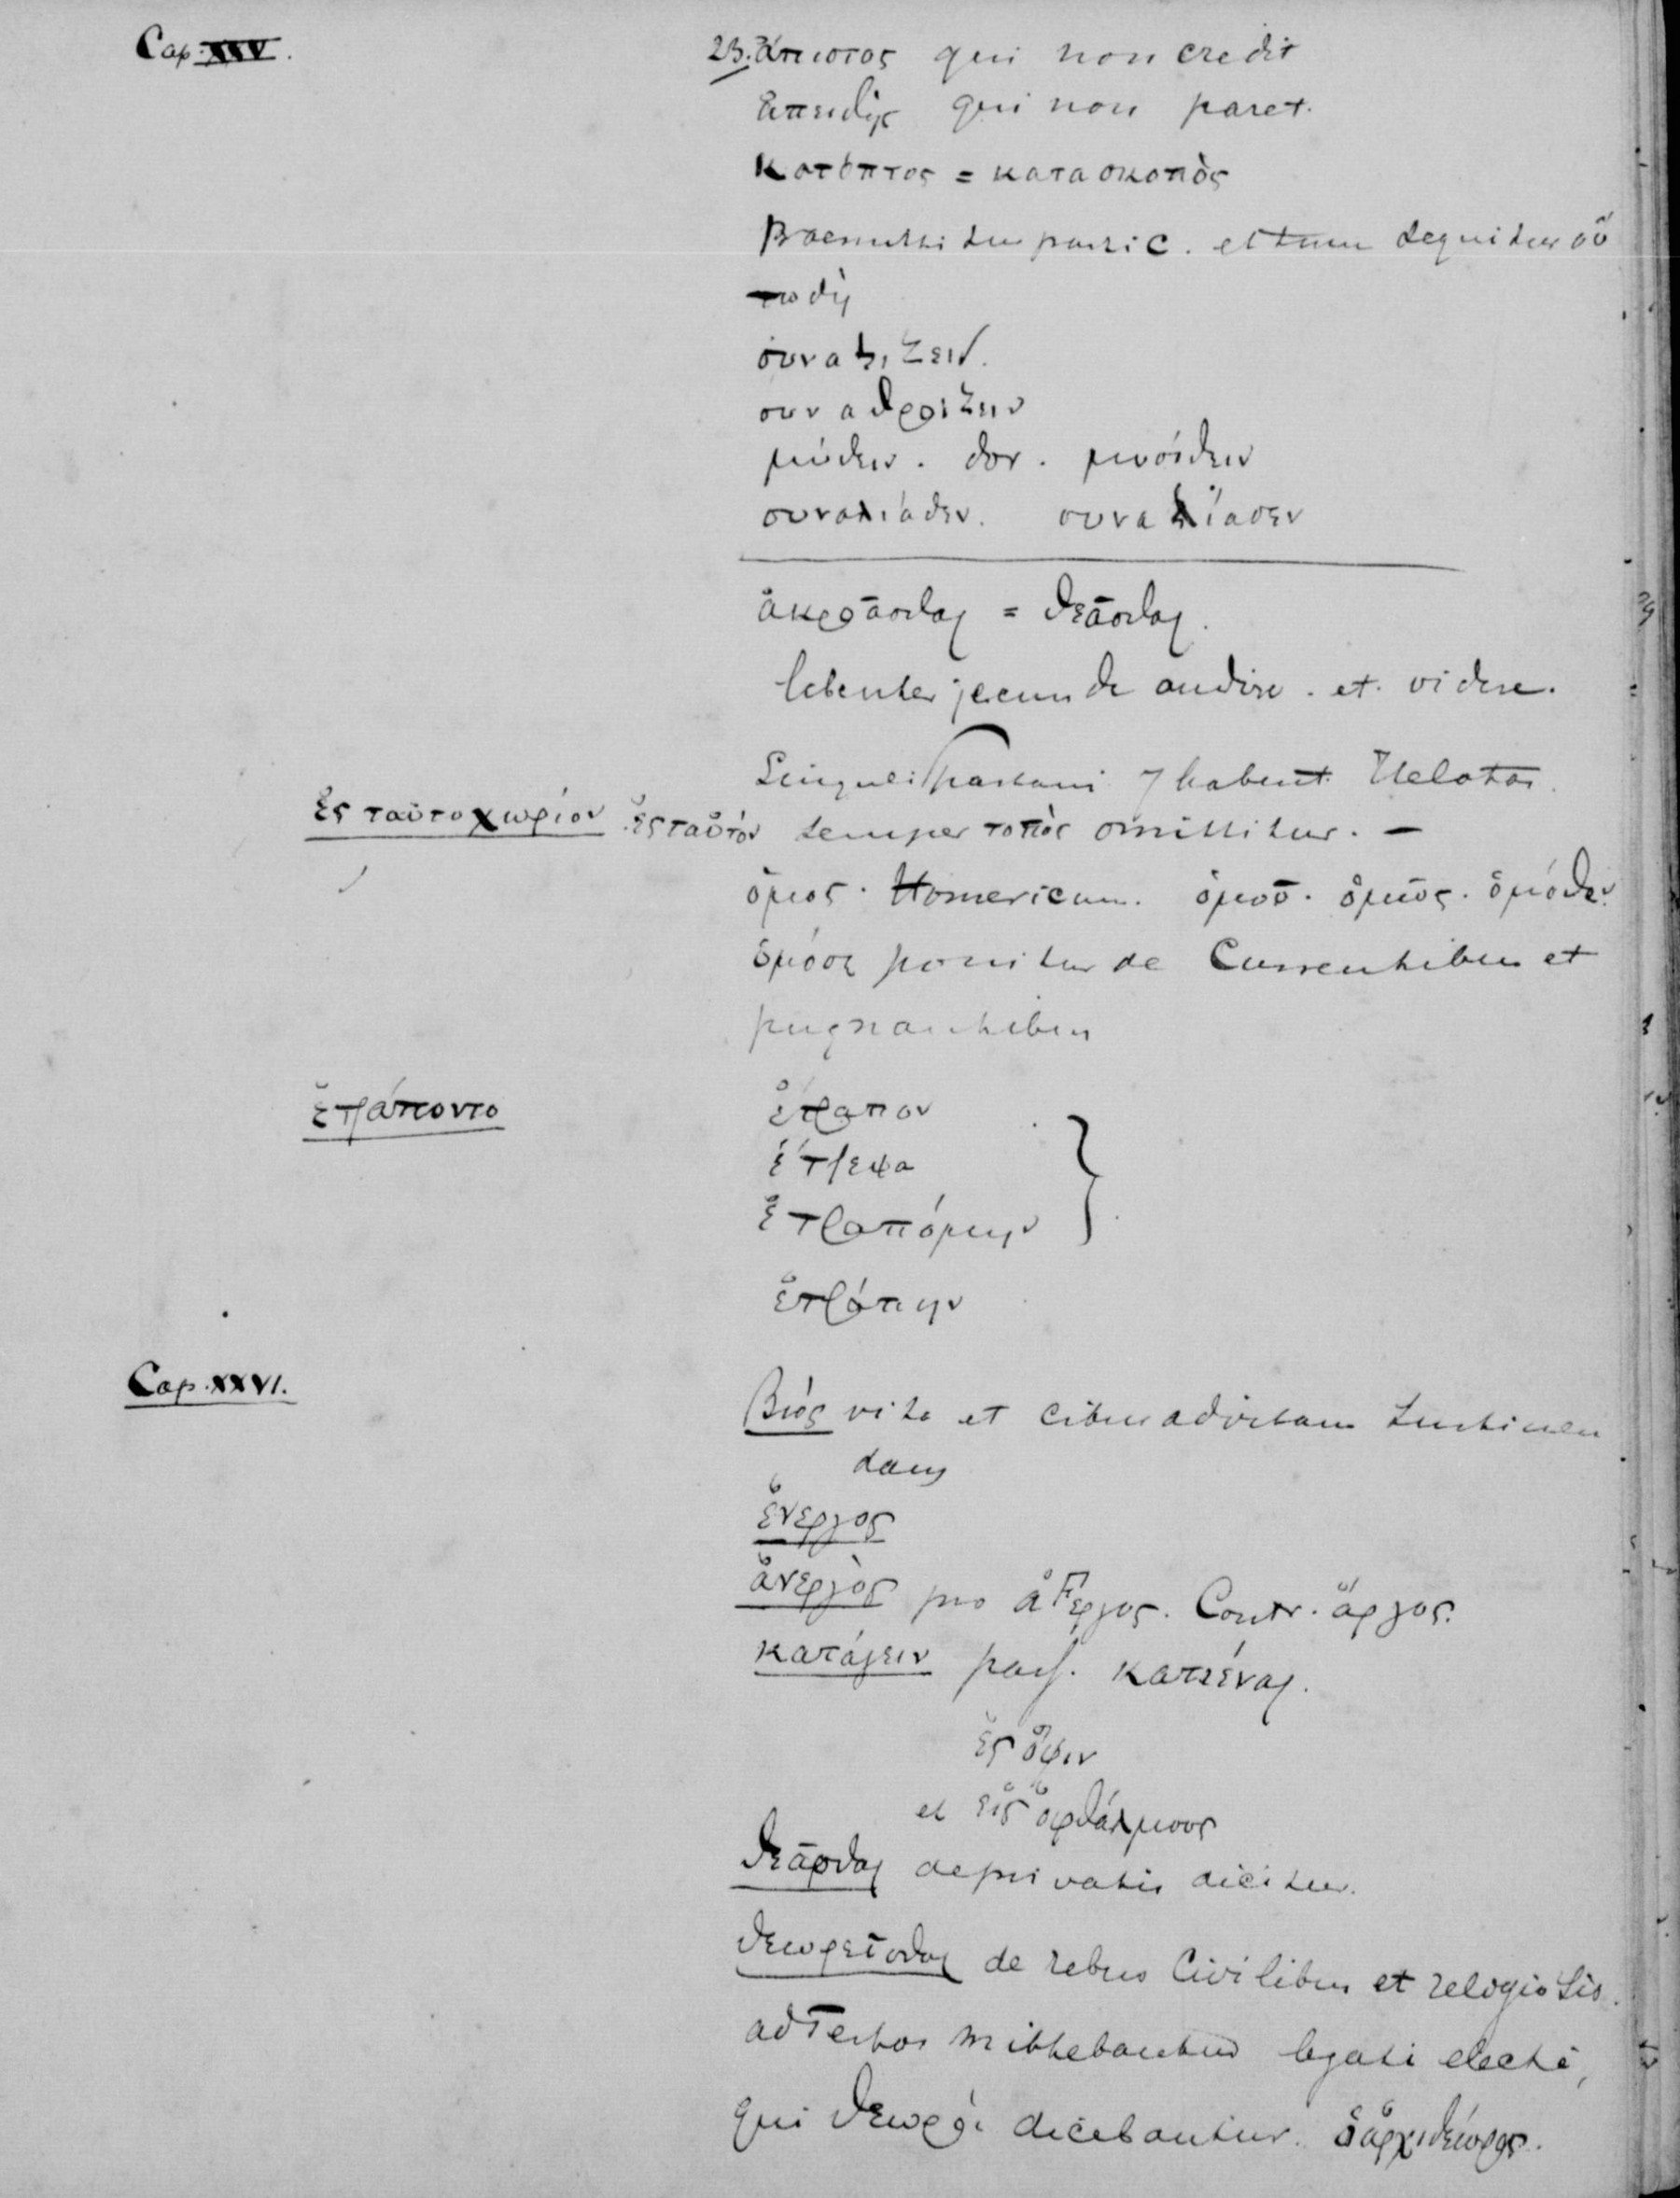 Cap. XXV.
23. ἄπιστος qui non credit
ἀπειθὴς qui non paret.
κατόπτος = κατασκοπὸς
Praemittitur partic. et tum sequitur οὕ
τω δὴ
συναλίζειν.
συναθροίζειν
μύθειν. dor. μυσίδειν
συναλιάθεν. συναλίασεν
ἀκροᾶσθαι = θεᾶσθαι.
libenter jucunde audire. et. videre.
Singuli Spartani 7 habent Helotas.
ἐς ταὐτο χωρίον ἐς ταὐτόν semper τοπὸς omittitur. —
ὁμος. Homericum. ὁμοῦ. ὁμῶς. ὁμόθεν.
ὁμόσε ponitur de currentibus et
pugnantibus
ἐτράποντο ἔτραπον
ἔτρεψα
ἐτραπόμην
ἐτράπην
Cap. XXVI.
Βιός vita et cibus ad vitam sustinen
dam
ἐνεργος
ἀνεργὸς pro ἀFεργος. Contr. ἄργος.
κατάγειν pass. κατιέναι.
ἐς ὄψιν
et εἰς ὀφθάλμους
θεᾶσθαι de privatis dicitur.
θεωρεῖσθαι de rebus civilibus et religiosis.
ad Festos mittebantur legati electi,
qui θεωροί dicebantur. ὁ ἀρχιθέωρος.